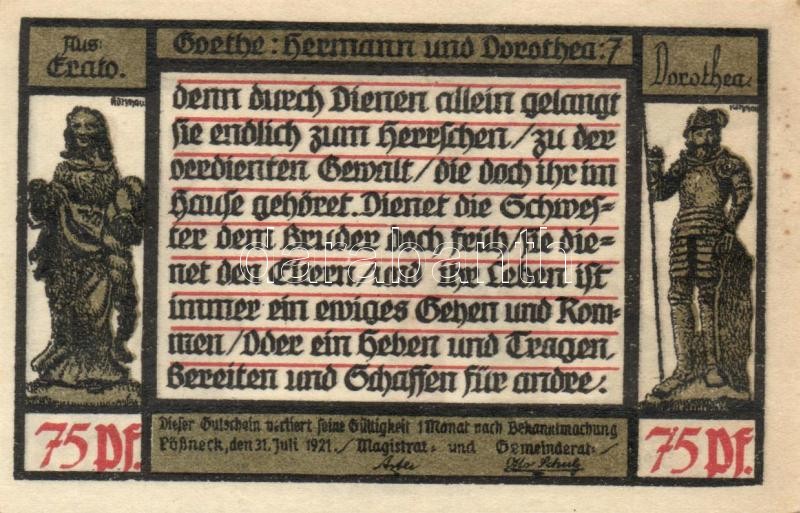 Aus:
Erato.
Goethe: Hermann und Dorothea: 7
Dorothea.
denn durch Dienen allein gelangt
sie endlich zum Herrschen/zu der
verdienten Gewalt/die doch ihr im
Hause gehöret. Dienet die Schwes-
ter dem Bruder doch früh/sie die-
net den Eltern/und ihr Leben ist
immer ein ewiges Gehen und Kom-
men/Oder ein Heben und Tragen,
Bereiten und Schaffen für andre.
darabanth
75 Pf.
Dieser Gutschein verliert seine Gültigkeit 1 Monat nach Bekanntmachung
Pößneck, den 31. Juli 1921./Magistrat- und Gemeinderat-
75 Pf.